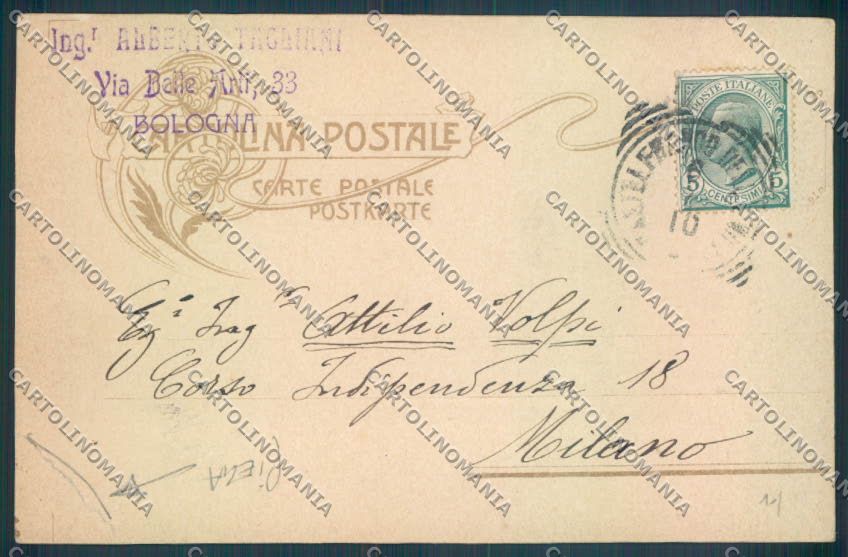 Ing.r ALBERTO TAGLIANI
Via Delle Arti, 33
BOLOGNA
CARTOLINA POSTALE
CARTE POSTALE
POSTKARTE
POSTE ITALIANE
5 5
CENTESIMI
10
Attilio Volpi
Corso Indipendenza 18
Milano
PIEGA
CARTOLINOMANIA